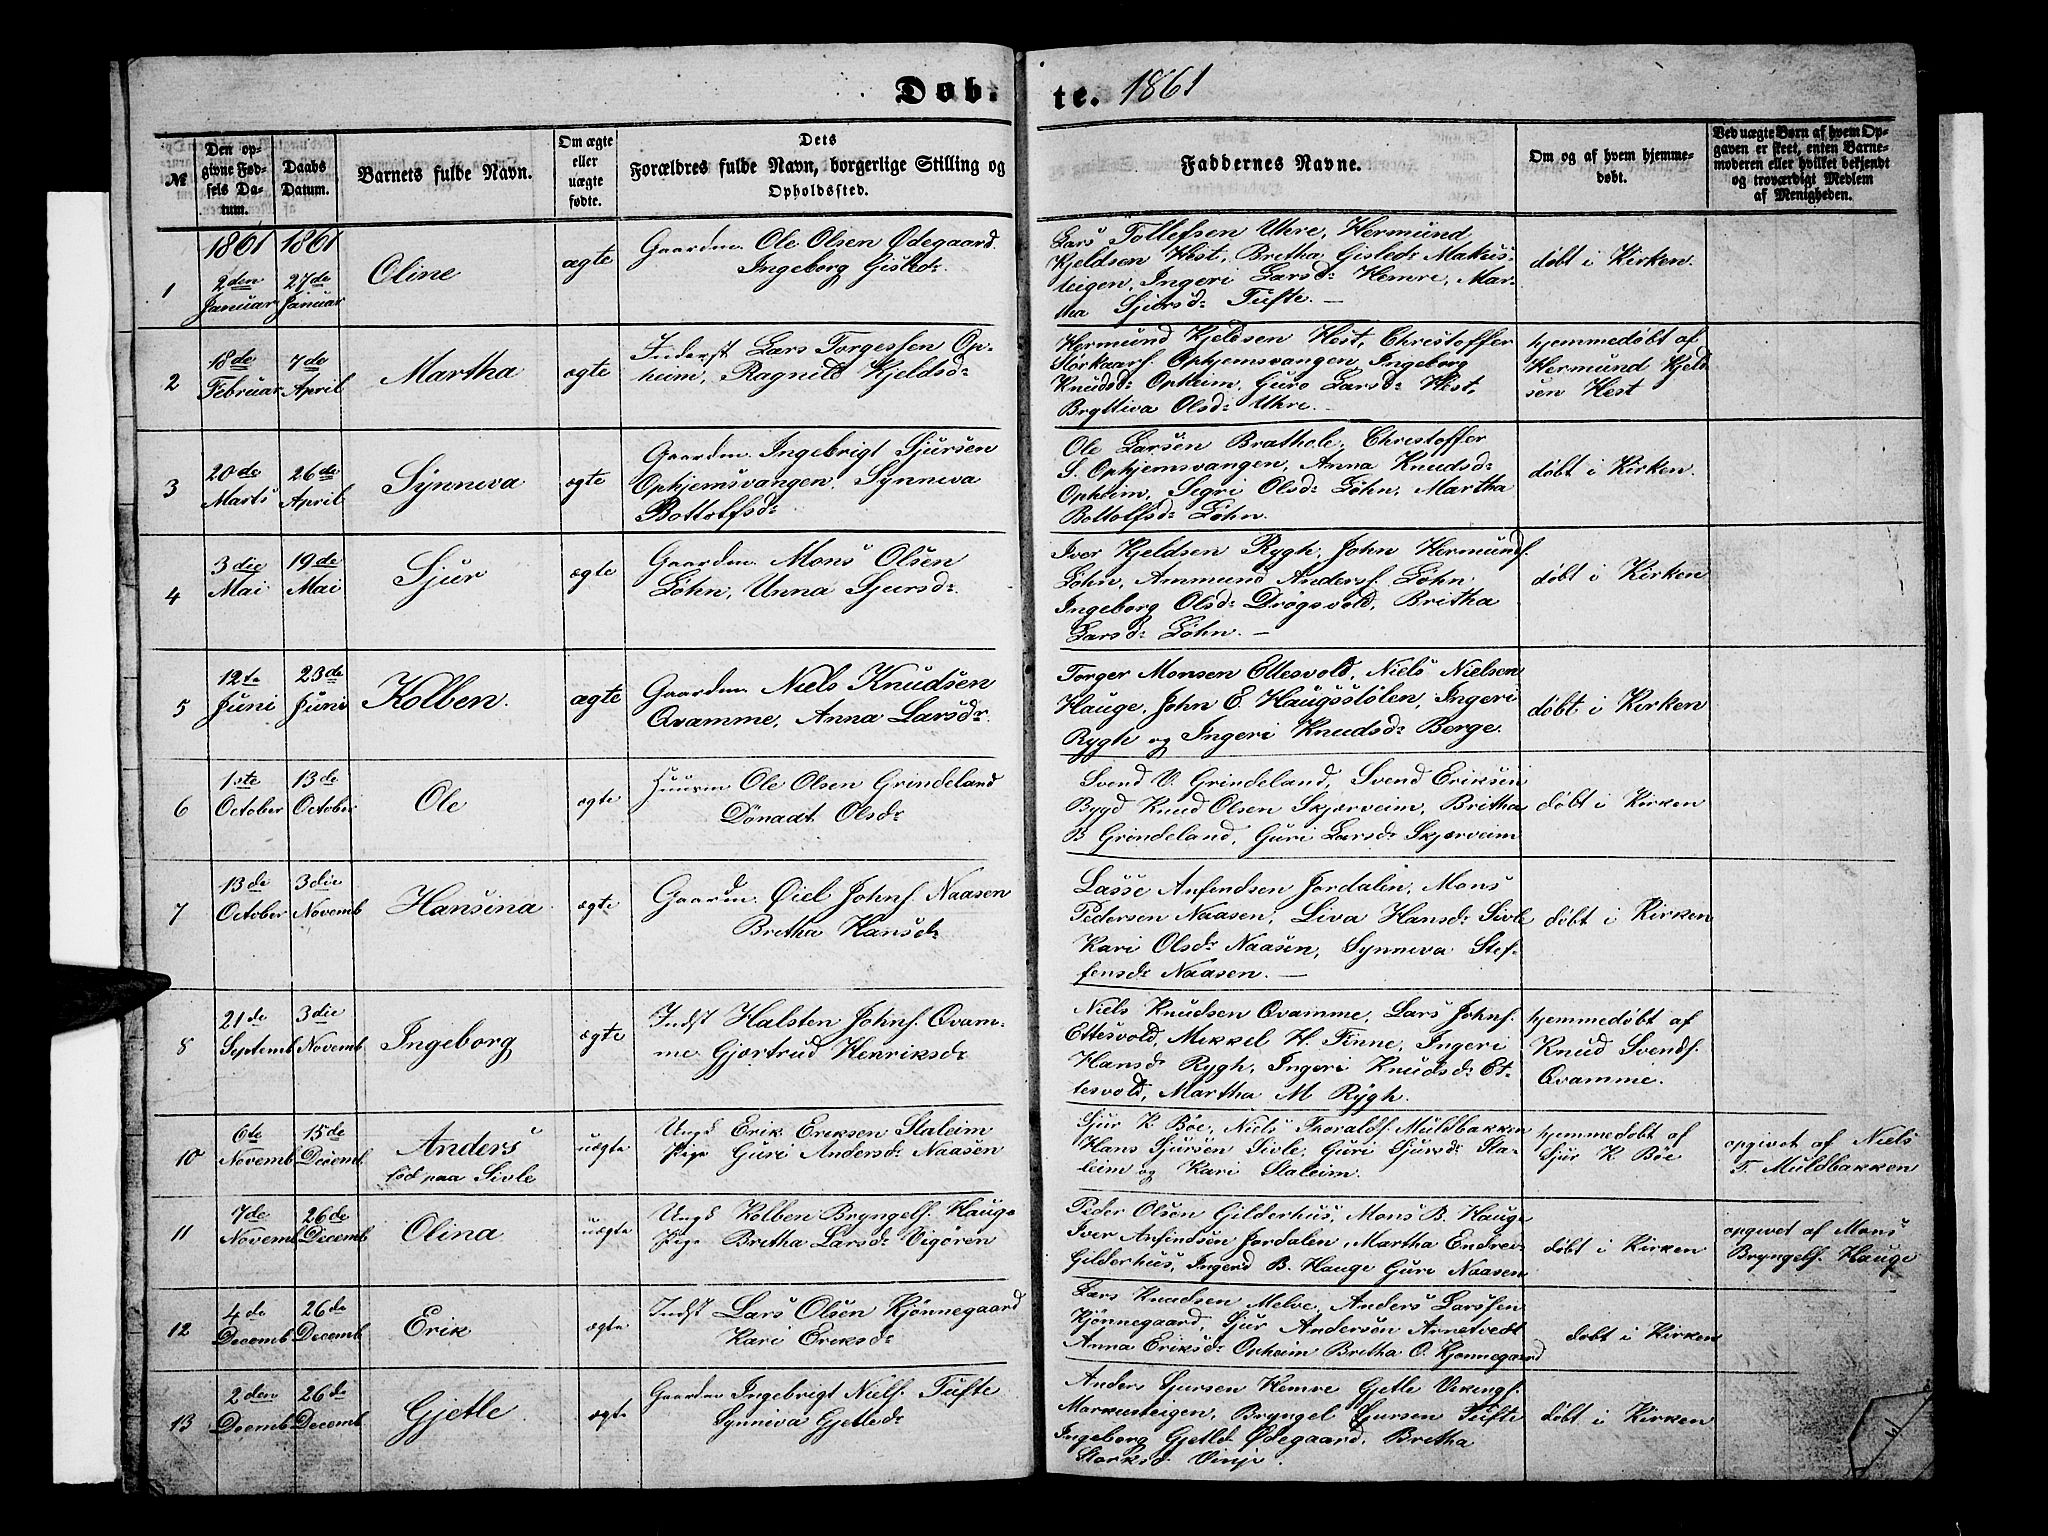 Døb- te. 1861
№
Den op-
givne Fød-
sels Da-
tum.
Daabs
Datum.
Barnets fulde Navn.
Om ægte
eller
uægte
fødte.
Dets
Forældres fulde Navn, borgerlige Stilling og
Opholdssted.
Faddernes Navne.
Om og af hvem hjemme-
døbt.
Ved uægte Børn af hvem Op-
gaven er skeet, enten Barne-
moderen eller hvilket bekjendt
og troværdigt Medlem
af Menigheden.
1
1861
2den
Januar
1861
27de
Januar
Oline
ægte
Gaardm. Ole Olsen Ødegaard.
Ingeborg Gisledr
Lars Tollefsen Uhre, Hermund
Kjeldsen Hest, Bretha Gisledr Makus-
teigen, Ingeri Larsdr Hemre, Mar-
tha Sjursdr Tufte. —
døbt i Kirken.
2
18de
Februar
7de
April
Martha
ægte
Inderst Lars Torgessen Op-
heim, Ragnild Kjeldsd
Hermund Kjeldsen Hest, Christoffer
Störkaars. Ophjemsvangen, Ingeborg
Knudsdr Opheim, Guro Larsdr Hest,
Bryttiva Olsdr Uhre. —
hjemmedøbt af
Hermund Kjeld
sen Hest
3
20de
Marts
26de
April
Synneva
ægte
Gaardm. Ingebrigt Sjursen
Ophjemsvangen. Synneva
Bottolfsdr
Ole Larsen Brathole, Christoffer
S. Ophjemsvangen, Anna Knudsdr
Opheim, Segri Olsdr Löhn, Martha
Bottolfsdr Löhn.
døbt i Kirken.
4
3die
Mai
19de
Mai
Sjur
ægte
Gaardm. Mons Olsen
Löhn, Unna Sjursdr.
Iver Kjeldsen Rygh, John Hermunds.
Löhn, Ammund Anders. Löhn
Ingeborg Olsdr Drøgsvold, Britha
Larsdr Löhn. —
døbt i Kirken
5
12te
Juni
23de
Juni
Kolben.
ægte
Gaardm. Niels Knudsen
Qvamme, Anna Larsdr.
Torger Monsen Ettesvold, Niels Nielsen
Hauge, John E. Haugsstölen, Ingeri
Rygh og Ingeri Knudsdr Berge.
døbt i Kirken
6
1ste
October
13de
October
Ole
ægte
Huusm Ole Olsen Grindeland
Dönadt Olsdr
Svend V. Grindeland, Svend Eriksen
Bygd Knud Olsen Skjerveim, Britha
B Grindeland, Guri Larsdr Skjærveim
døbt i Kirken
7
13de
October
3die
Novemb
Hansina
ægte
Gaardm. Øiel Johns. Naasen
Bretha Hansdr
Lasse Anfendsen Jordalen, Mons
Pedersen Naasen, Liva Hansdr Sivle
Kari Olsdr Naasen, Synneva Stef-
fensdr Naasen. —
døbt i Kirken
8
21de
Septemb
3die
Novemb
Ingeborg
ægte
Indst Halsten Johns. Qvam-
me Gjørtrud Henriksdr
Niels Knudsen Qvamme, Lars Johns.
Ettesvold, Mikkel H. Finne, Ingeri
Hansdr Rygh, Ingeri Knudsdr Et-
tesvold, Martha M Rygh.
hjemmedøbt af
Knud Svends.
Qvamme.
10
6te
Novemb
15de
Decemb
Anders
fød paa Sivle
uægte
Ungd Erik Eriksen Staleim
Pige Guri Andersdr Naasen
Sjur K Böe, Niels Thoralds Muldbakken
Hans Sjursen Sivle, Guri Sjursdr Sta-
leim og Kari Staleim.
hjemmedøbt af
Sjur K. Böe
opgivet af Niels
T. Muldbakken
11
7de
Novemb
26de
Decemb
Olina
uægte
Ungd Kolben Bryngels. Hauge
Pige Bretha Larsdr Vigören
Peder Olsen Gilderhus, Mons B. Hauge
Iver Anfendsen Jordalen, Martha Endres-
Gilderhus, Ingerd B. Hauge Guri Naasen
døbt i Kirken
opgivet af Mons
Bryngels. Hauge
12
4de
Decemb
26de
Decemb
Erik
ægte
Indst Lars Olsen Kjönnegaard
Kari Eriksdr
Lars Knudsen Melve, Anders Larssen
Kjönnegaard, Sjur Andersen Arnetvedt
Anna Eriksdr Opheim Bretha O. Kjönnegaard
døbt i Kirken
13
2den
Decemb
26de
Decemb
Gjetle
ægte
Gaardm Ingebrigt Niels. Tufte
Synneva Gjetledr
Anders Sjursen Hemre Gjetle Vikings.
Markusteigen, Bryngel Sjursen Tufte
Ingeborg Gjetled Ødegaard, Bretha
Storksd Vinje.
døbt i Kirken